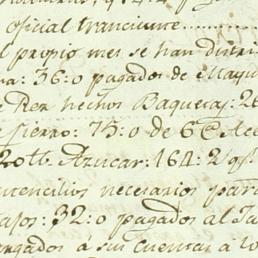 oficial tranciunte
l propio mes se han distri
na: 36: o pagados de Maqui
e Rez hechos Baquetas: 26
e fierro: 75: o de 6@ Ace
20 ttt. Azucar: 164: 2 qs
utencilios necesarios para
ajos: 32: o pagados al Ta
argados á sus cuentas a to